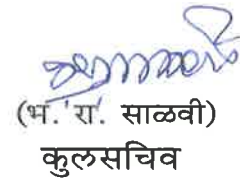 (भ. रा. साळवी)
कुलसचिव